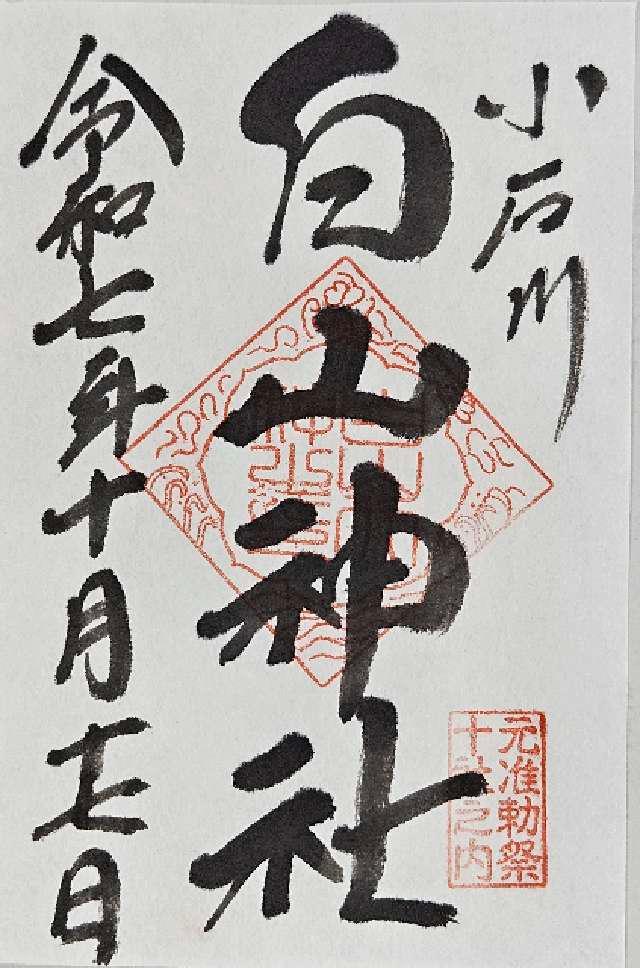 小石川
白山神社
元准勅祭
十社之内
令和七年十月十七日